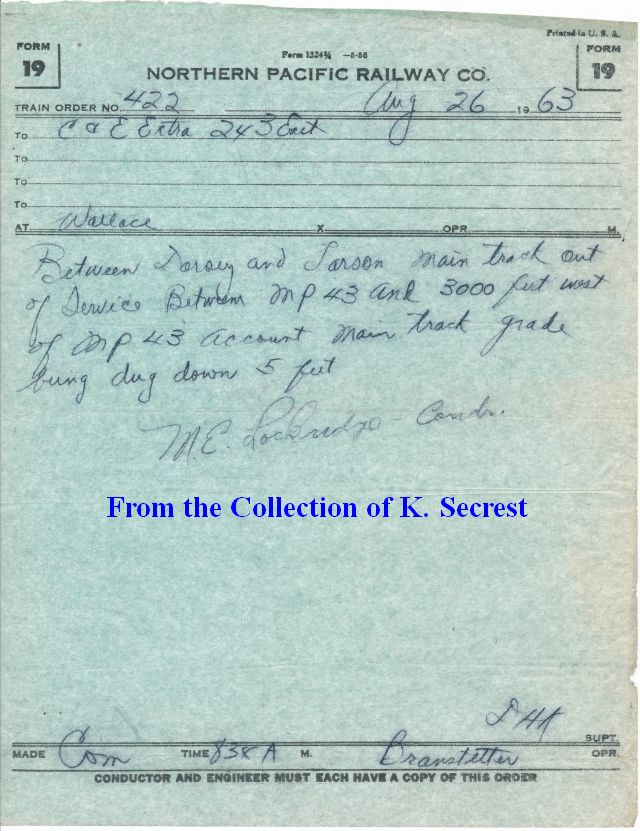 Printed in U. S. A.
FORM 19
Form 1324¾ —5-56
FORM 19
NORTHERN PACIFIC RAILWAY CO.
TRAIN ORDER NO. 422 Aug 26 1963
To C & E Extra 243 East
To
To
To
AT Wallace X OPR. M.
Between Dorsey and Larson main track out
of Service Between MP 43 and 3000 feet west
of MP 43 account main track grade
being dug down 5 feet
M.E. Lockridge - Condr.
From the Collection of K. Secrest
SUPT.
MADE Com TIME 838 A M. Branstetter OPR.
CONDUCTOR AND ENGINEER MUST EACH HAVE A COPY OF THIS ORDER